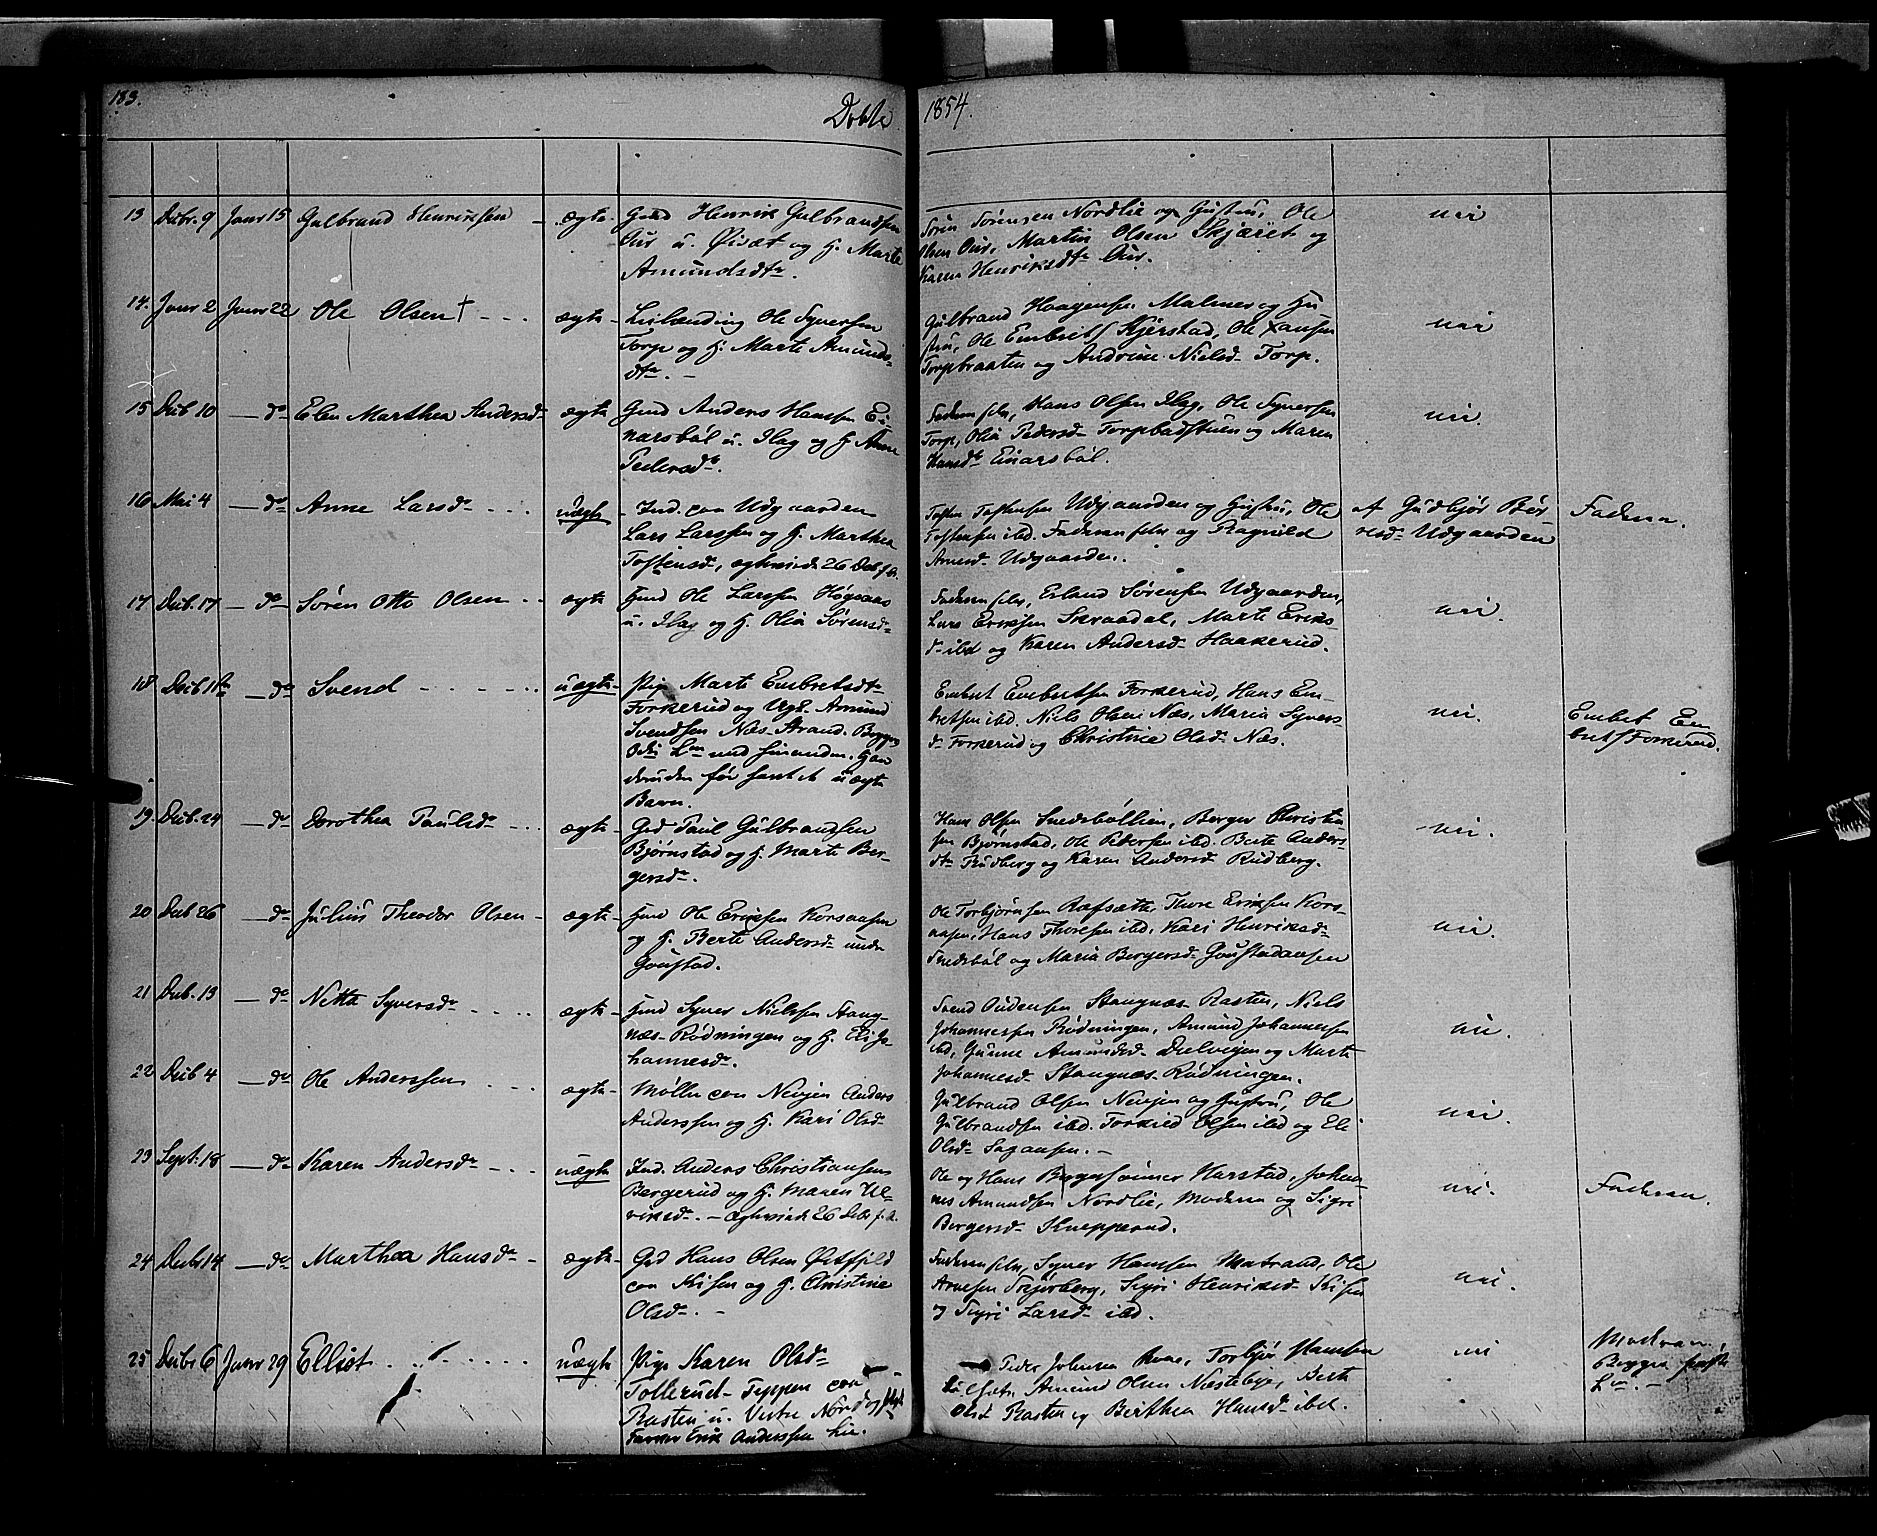 183.
Døbte
1854.
13 Decbr. 9 Janr 15 Gulbrand Henriksen - ægte Gmd Henrik Gulbrandsen
Aur u. Øieæt og H. Marte
Amundsdtr.
Søren Sørensen Nordlie og Hustru, Ole
Olsen Aur, Martin Olsen Skjæret og
Karen Henriksdtr Aur.
nei
14. Janr 2 Janr 22 Ole Olsen † - - - ægte Leilænding Ole Syversen
Torp og H. Marte Amunds-
dtr. -
Gulbrand Haagensen Malmer og Hu-
stru, Ole Embrets. Kjerstad, Ole Hansen
Torpbraaten og Andrine Nielsd. Torp.
nei
15 Decb 10 - do Elen Marthea Andersd. ægte Gmd Anders Hansen Ei-
narsbøl u. Ilag og H. Anne
Pedersdr.
Faderen selv, Hans Olsen Ilag, Ole Syversen
Torp, Olia Pedersd. Torpbadstuen og Maren
Hansdr Einarsbøl.
nei.
16 Mai 4 - do Anne Larsdr - - - uægte Ind. paa Udgaarden
Lars Larssen og H. Marthea
Tostensd., ægteviede 26 Deb. f. A.
Tosten Tostensen Udgaarden og Hustru, Ole
Tostensen ibd. Faderen selv og Ragnild
Arnesd. Udgaarden.
af Gudbjør Bør-
resd. Udgaarden
Faderen.
17 Decb. 17 - do Søren Otto Olsen - - ægte Hmd Ole Larssen Høgaas
u. Ilag og H. Olia Sørensd.
Faderen selv, Erland Sørensen Udgaarden,
Lars Eriksen Skraadal, Marte Eriks-
d. ibd og Karen Andersd. Haakerud.
nei.
18 - do Svend - - - uægte Pige Marte Embretsdtr
Forkerud og Ugk. Amund
Svendsen Næs-Strand. Begges
Barn.
Embret Embretsen Forkerud, Hans Em-
bretsen ibd. Niels Olsen Næs, Maria Syvers-
d. Forkerud og Christine Olsd. Næs.
nei.
Embret Em-
brets. Forkerud.
19. Decb. 24 - do Dorothea Paulsdr - - ægte Gmd Paul Gulbrandsen
Bjørnstad og H. Marte Ber-
gersdr.
Hans Olsen Snedsbøllien, Berger Christia-
sen Bjørnstad, Ole Pedersen ibd. Berte Anders-
dtr Rudberg og Karen Andersd. Rudberg.
nei.
20 Decb 26 - do Julius Theodor Olsen - ægte Hmd Ole Eriksen Korsaasen
og H. Berte Andersd. under
Goustad.
Ole Torbjørnsen Rafsætte, Thore Eriksen Kors-
aasen, Hans Thoresen ibd, Kari Henriksd.
Snedsbøl og Maria Bergersd. Goustadaasen
nei.
21 Decb. 13 - do Netta Syversdr - - - ægte Hmd Syver Nielsen Stang-
næs-Rødningen og H. Eli Jo-
hannesdr.
Svend Audensen Stangnæs-Rasten, Niels
Johannessen Rødningen, Amund Johannessen
ibd, Gunne Amundsd. Dælvigen og Marte
Johannesd. Stangnæs-Rødningen.
nei.
22 Decb 4 - do Ole Anderssen - - - ægte Møller paa Nevjen Anders
Anderssen og H. Kari Olsd.
Gulbrand Olsen Nevjen og Hustru, Ole
Gulbrandsen ibd. Torkild Olsen ibd og Eli
Olsd. Sagaasen. -
nei.
23 Septr. 18 - do Karen Andersdr - - - uægte Ind. Anders Christiansen
Bergerud og H. Maren Ul-
riksd. - ægteviede 26 Debr f. A.
Ole og Hans Bergersønner Harstad, Johan-
nes Amundsen Nordlie, Moderen og Sigri
Bergersd. Knapperud.
nei.
Faderen.
24 Decbr 14 - do Marthea Hansdr - ægte Gmd Hans Olsen Østfjeld
paa Kisen og H. Christine
Olsd. -
Faderen selv, Syver Hansen Matrand, Ole
Arnesen Skjørberg, Sigri Henriksd. Kisen
og Sigri Larsd. ibd.
nei.
25 Decbr 6 Janr 29 Elliot - - - uægte Pige Karen Olsdr
Tollerud-Typpen paa
Rasten u. Vestre Nord
Farver Erik Anderssen her.
Peder Johnsen, Torbjør Hansen
Amund Olsen Næstebye, Berte
Olsd Rasten og Berthea Hansd. ibd.
nei
Moderen.
Begges første
Lm. -